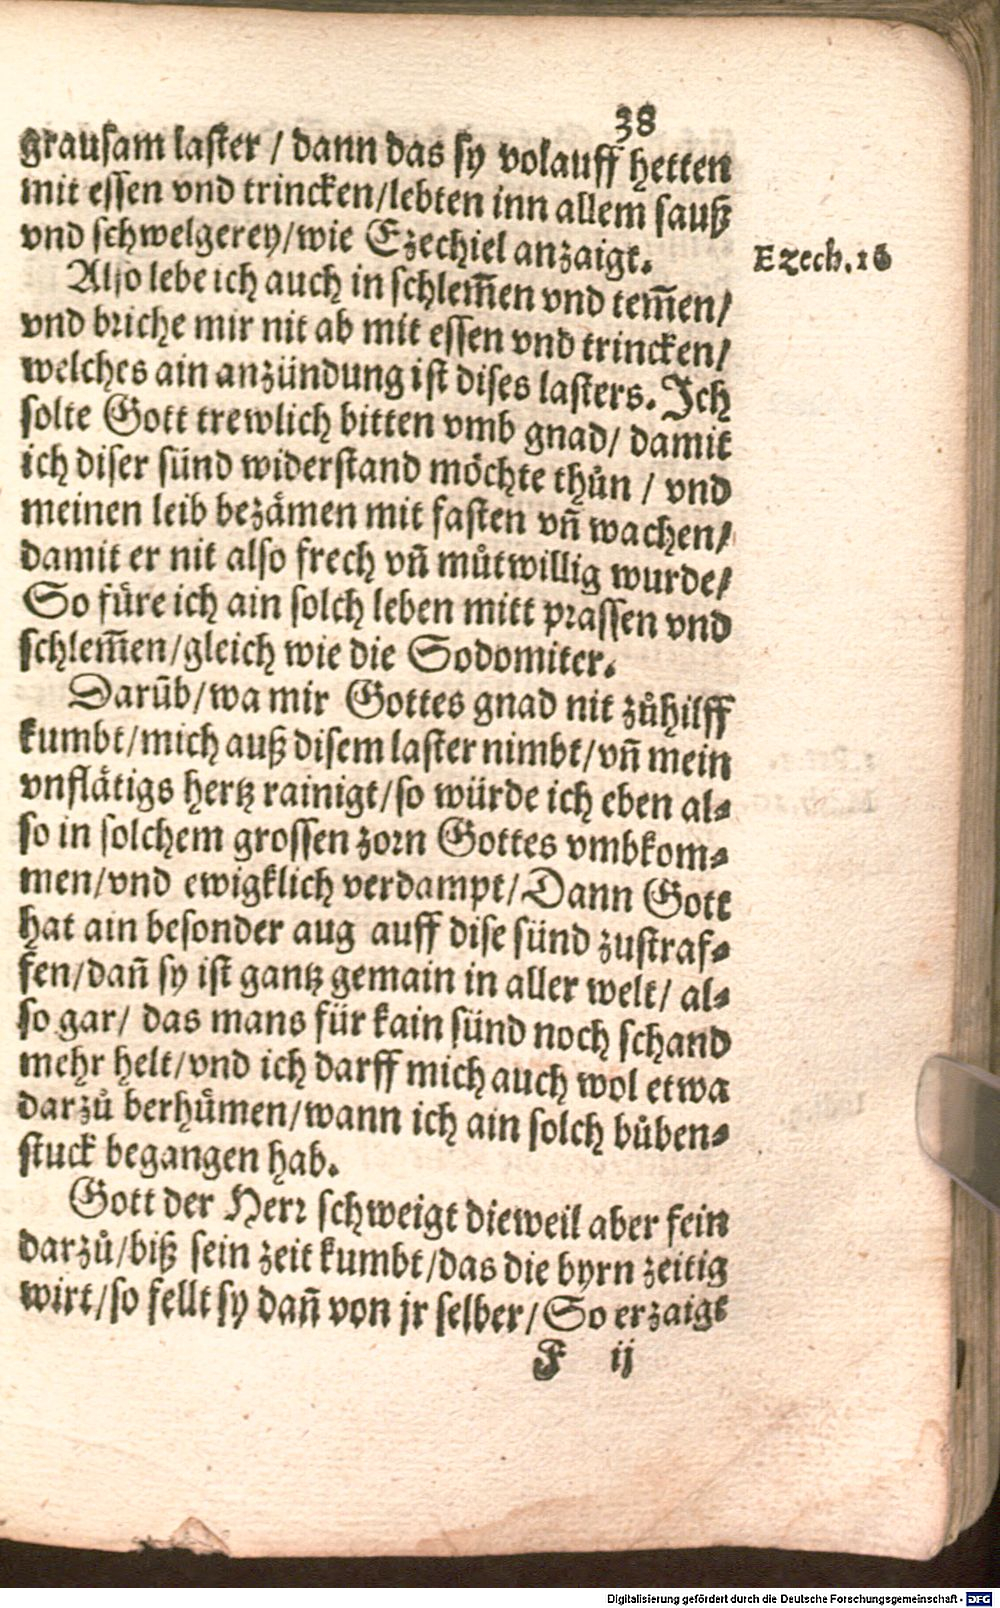 38
grausam laster / dann das sy volauff hetten
mit essen vnd trincken/lebten inn allem sauß
vnd schwelgerey/wie Ezechiel anzaigt.
Ezech.16
Also lebe ich auch in schlem̃en vnd tem̃en/
vnd briche mir nit ab mit essen vnd trincken/
welches ain anzündung ist dises lasters. Ich
solte Gott trewlich bitten vmb gnad/ damit
ich diser sünd widerstand möchte thůn / vnd
meinen leib bezämen mit fasten vñ wachen/
damit er nit also frech vñ můtwillig wurde/
So füre ich ain solch leben mitt prassen vnd
schlem̃en/gleich wie die Sodomiter.
Darũb/wa mir Gottes gnad nit zůhilff
kumbt/mich auß disem laster nimbt/vñ mein
vnflätigs hertz rainigt/so würde ich eben al⸗
so in solchem grossen zorn Gottes vmbkom⸗
men/vnd ewigklich verdampt/Dann Gott
hat ain besonder aug auff dise sünd zustraf⸗
fen/dañ sy ist gantz gemain in aller welt/ al⸗
so gar/ das mans für kain sünd noch schand
mehr helt/vnd ich darff mich auch wol etwa
darzů berhümen/wann ich ain solch bůben⸗
stuck begangen hab.
Gott der Herr schweigt dieweil aber fein
darzů/biß sein zeit kumbt/das die byrn zeitig
wirt/so fellt sy dañ von jr selber/So erzaigt
F ij
Digitalisierung gefördert durch die Deutsche Forschungsgemeinschaft - DFG